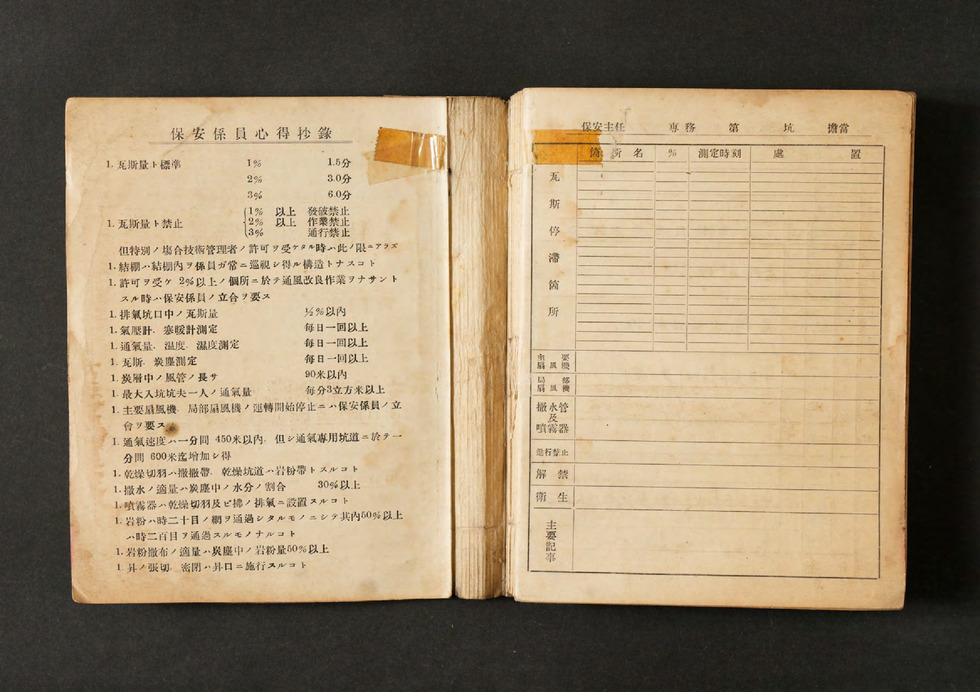 保安係員心得抄錄
1. 瓦斯量ト標準 1% 1.5分
2% 3.0分
3% 6.0分
1. 瓦斯量ト禁止 1% 以上 發破禁止
2% 以上 作業禁止
3% 通行禁止
但特別ノ場合技術管理者ノ許可ヲ受ケタル時ハ此ノ限ニアラズ
1. 結棚ハ結棚內ヲ係員ガ常ニ巡視シ得ル構造トナスコト
1. 許可ヲ受ケ 2%以上ノ個所ニ於テ通風改良作業ヲナサント
スル時ハ保安係員ノ立合ヲ要ス
1. 排氣坑口中ノ瓦斯量 ½%以內
1. 氣壓計. 寒暖計測定 每日一回以上
1. 通氣量. 溫度. 濕度測定 每日一回以上
1. 瓦斯. 炭塵測定 每日一回以上
1. 炭層中ノ風管ノ長サ 90米以內
1. 最大入坑坑夫一人ノ通氣量 每分3立方米以上
1. 主要扇風機. 局部扇風機ノ運轉開始停止ニハ保安係員ノ立
會ヲ要ス
1. 通氣速度ハ一分間 450米以內. 但シ通氣專用坑道ニ於テ一
分間 600米迄增加シ得
1. 乾燥切羽ハ撒撒帶. 乾燥坑道ハ岩粉帶トスルコト
1. 撒水ノ適量ハ炭塵中ノ水分ノ割合 30%以上
1. 噴霧器ハ乾燥切羽及ビ拂ノ排氣ニ設置スルコト
1. 岩粉ハ時二十目ノ網ヲ通過シタルモノニシテ其內50%以上
ハ時二百目ヲ通過スルモノナルコト
1. 岩粉撒布ノ適量ハ炭塵中ノ岩粉量50%以上
1. 昇ノ張切. 密閉ハ昇口ニ施行スルコト
保安主任 専務 第 坑 擔當
箇所名 % 測定時刻 處置
瓦斯停滯箇所
主要扇風機
局部扇風機
撒水管及噴霧器
進行禁止
解禁
衛生
主要記事